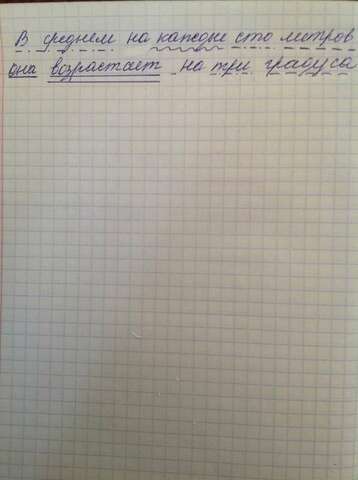 В среднем на каждые сто метров
она возрастает на три градуса